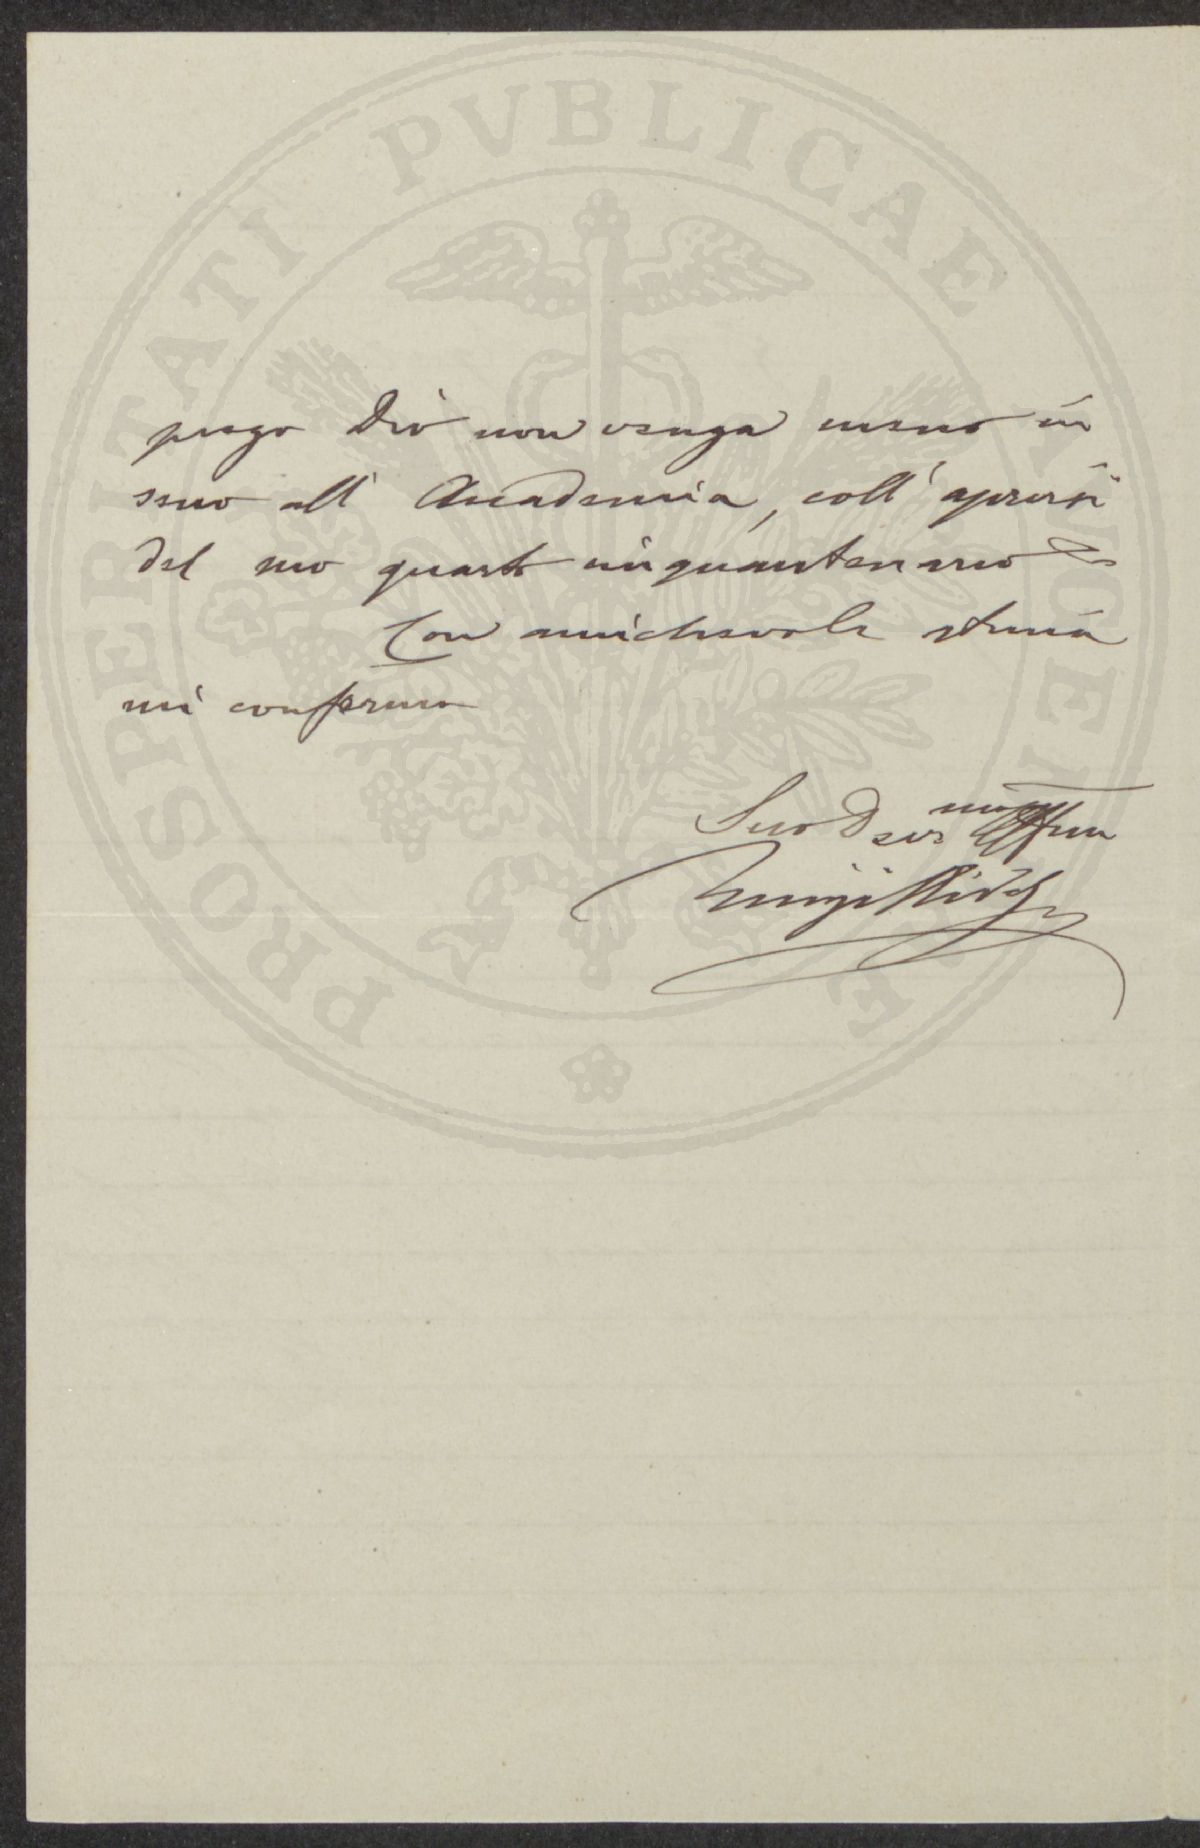 prego Dio non venga meno in
seno all' Accademia, coll' aprirsi
del suo quarto cinquantenario
Con amichevole stima
mi confermo
Suo
Luigi
PROSPERITATI PVBLICAE AVGENDAE